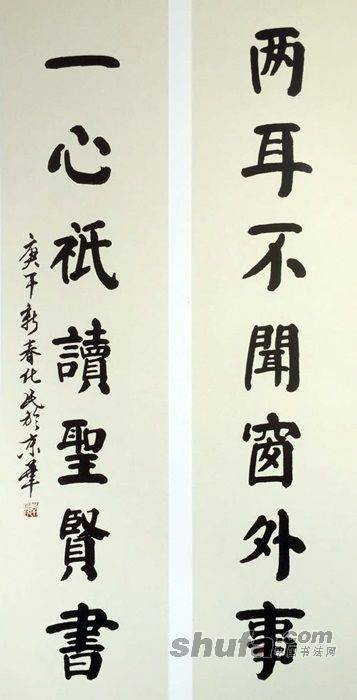 两耳不聞窗外事
一心祇讀聖賢書
庚午新春化民於京華
shufa.com
中国书法网